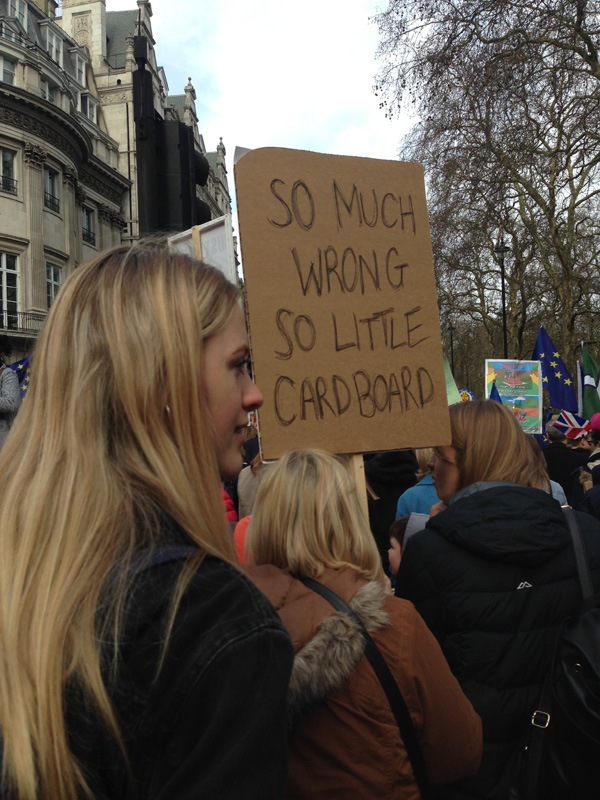 SO MUCH
WRONG
SO LITTLE
CARDBOARD